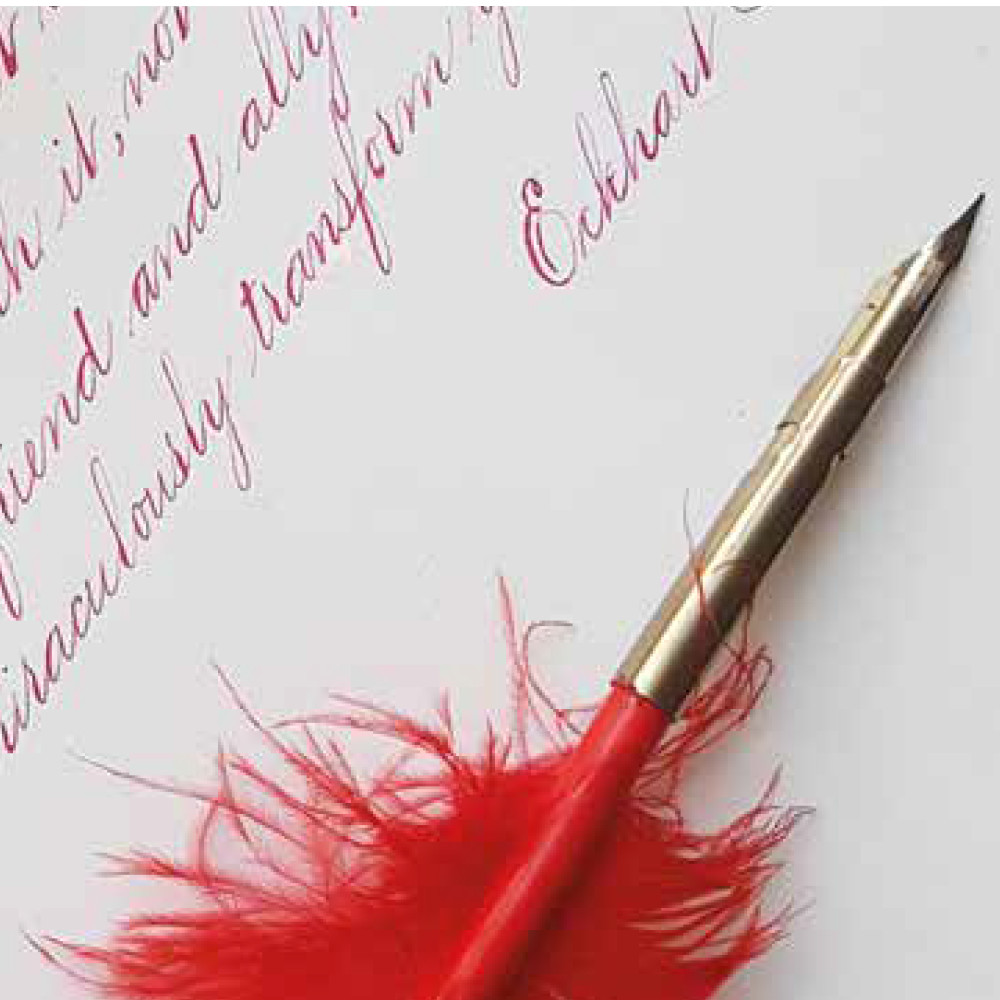 it, not
friend and ally,
miraculously transform y
Eckhart